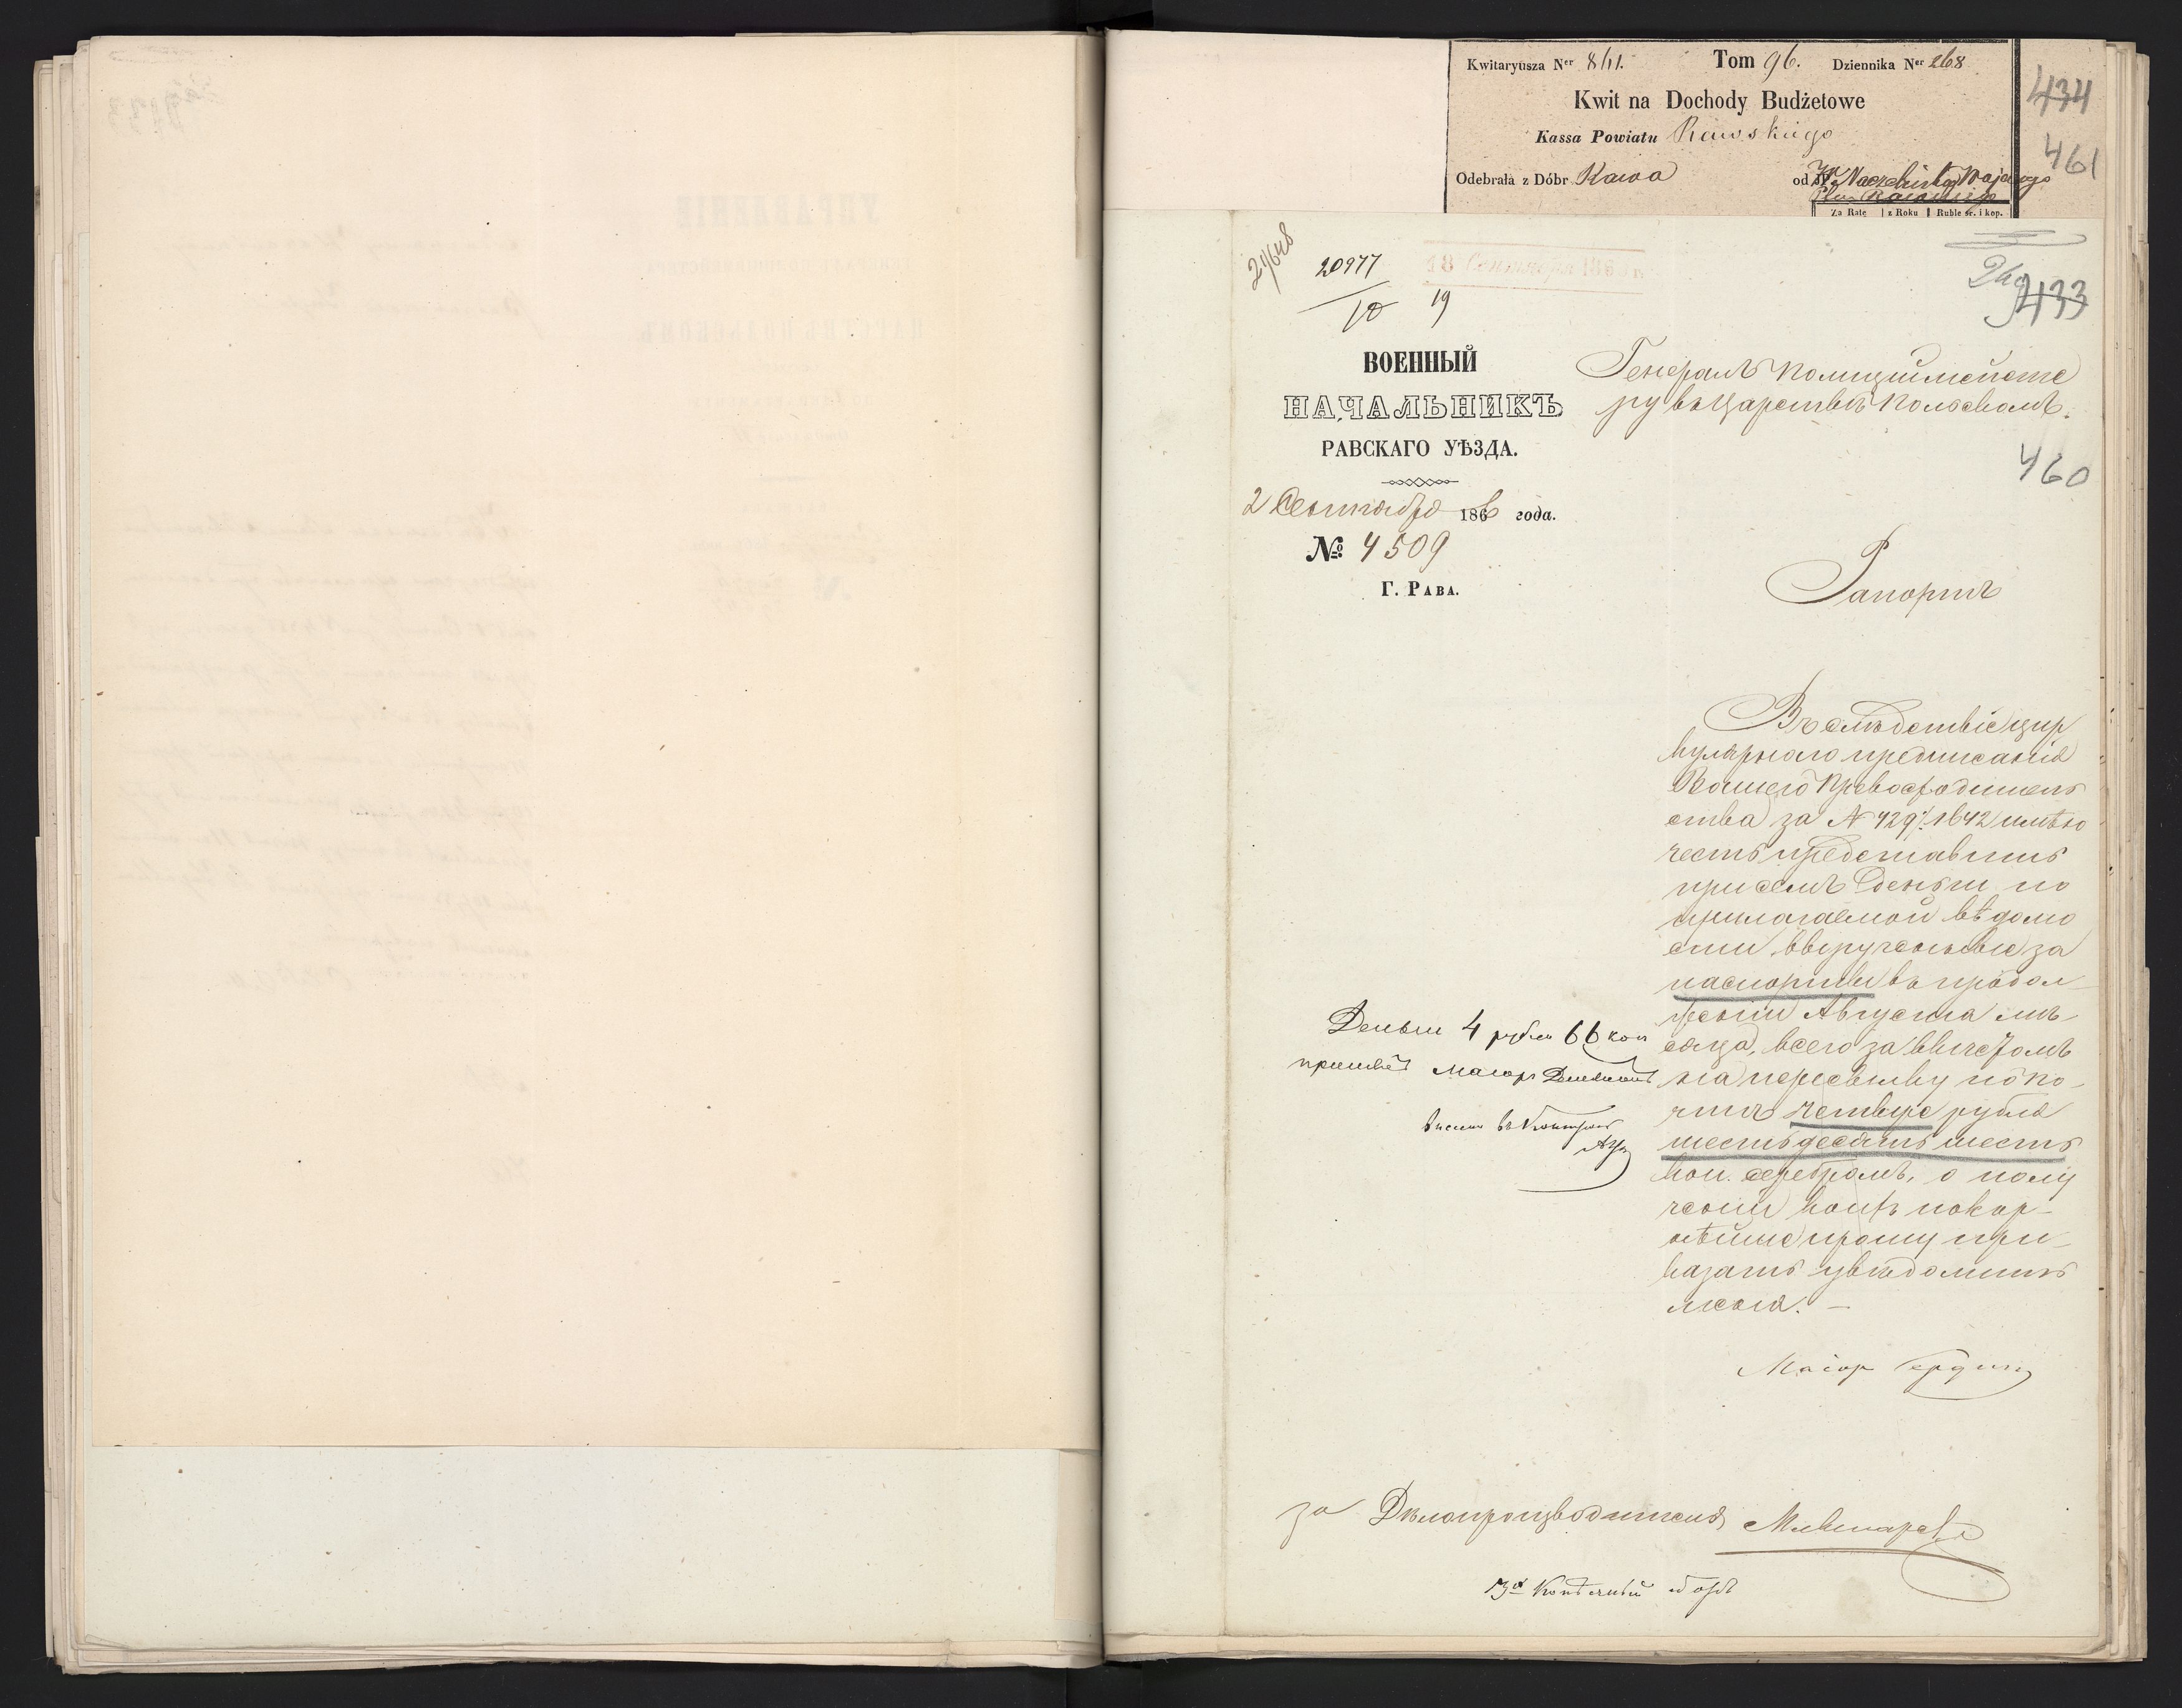 Kwitaryusza Ner 841. Tom 96. Dziennika Ner 268
Kwit na Dochody Budżetowe
Kassa Powiatu Rawskiego
Odebrała z Dóbr Rawa od JP. Naczelnika Wojennego
Ptu Rawskiego
Za Ratę z Roku Ruble sr. i kop.
434
461
21648
20977
10 19
18 Сентября 186
433
460
ВОЕННЫЙ
НАЧАЛЬНИКЪ
РАВСКАГО УѢЗДА.
2 Сентября 1866 года.
№ 4509
Г. РАВА.
Генералъ Полицiймейсте
ру въ Царствѣ Польскомъ.
Рапортъ
Въ слѣдствiе цир
кулярнаго предписанiя
Вашего Превосходитель
ства за N 429/1642 имѣю
честь представить
при семъ деньги по
прилагаемой вѣдомо
сти, вырученные за
паспорты въ продол
женiи Августа мѣ
сяца, всего за вычетомъ
на пересылку по по-
чтѣ четыре рубля
шестьдесятъ шесть
коп. серебромъ, о полу
ченiи коихъ покор-
нѣйше прошу при-
казать увѣдомить
меня. —
Деньги 4 рубля 66 коп
принялъ Маiоръ
Маiоръ
за Дѣлопроизводителя